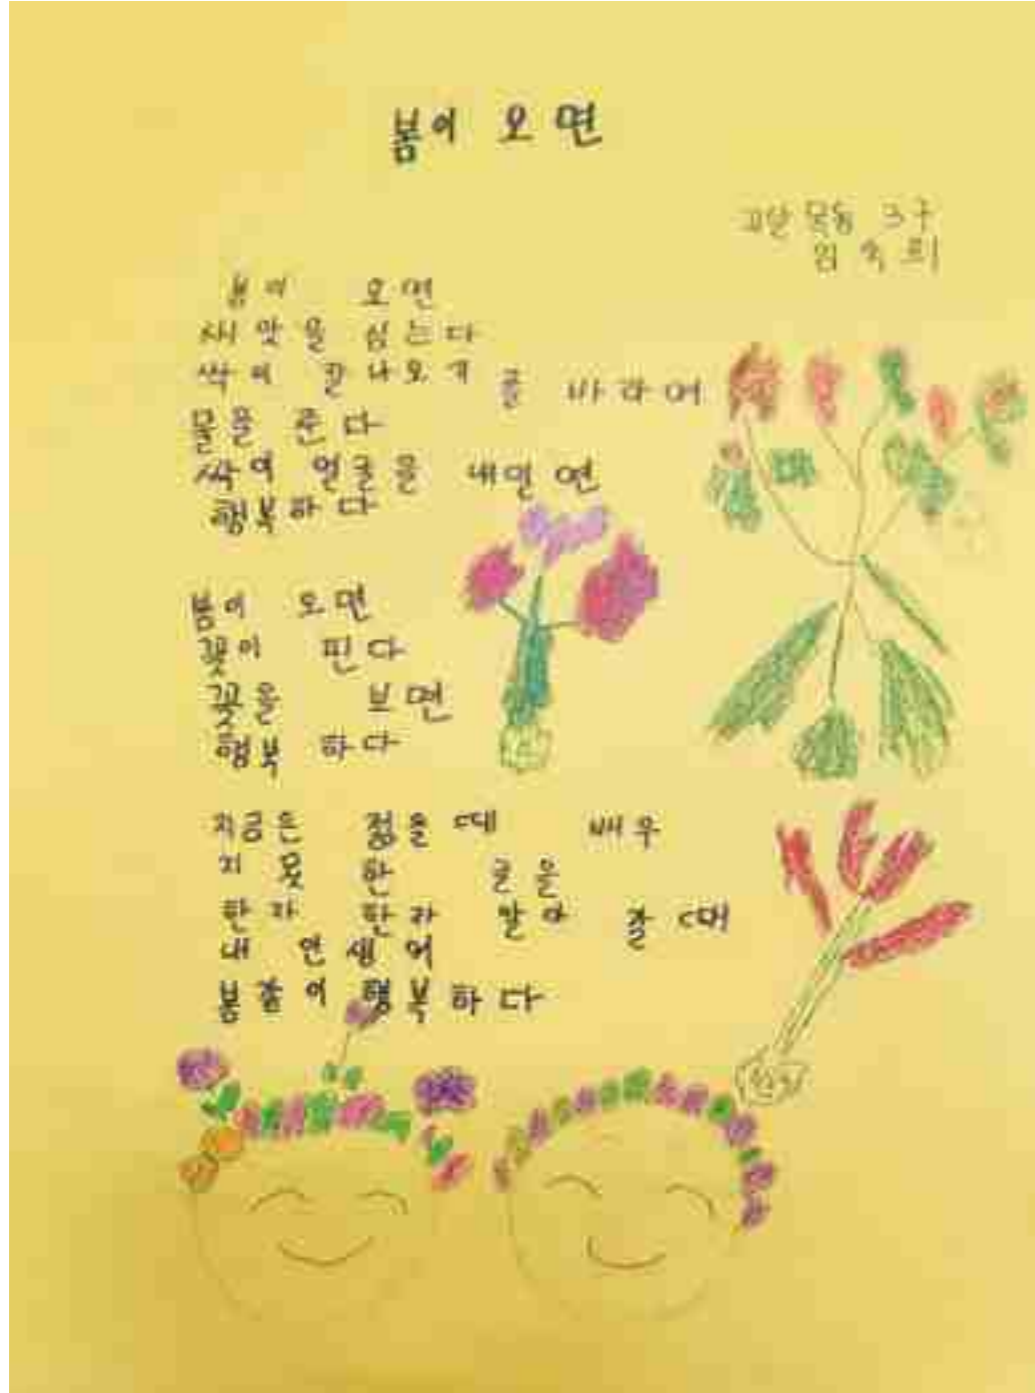 봄이 오면
고달 목동 3구
임숙희
봄이 오면
씨앗을 심는다
싹이 잘 나오기를 바라며
물을 준다
싹이 얼굴을 내밀면
행복하다
봄이 오면
꽃이 핀다
꽃을 보면
행복 하다
지금은 젊을때 배우
지 못한 글을
한자 한자 알아 갈때
내 인생이
봄같이 행복하다